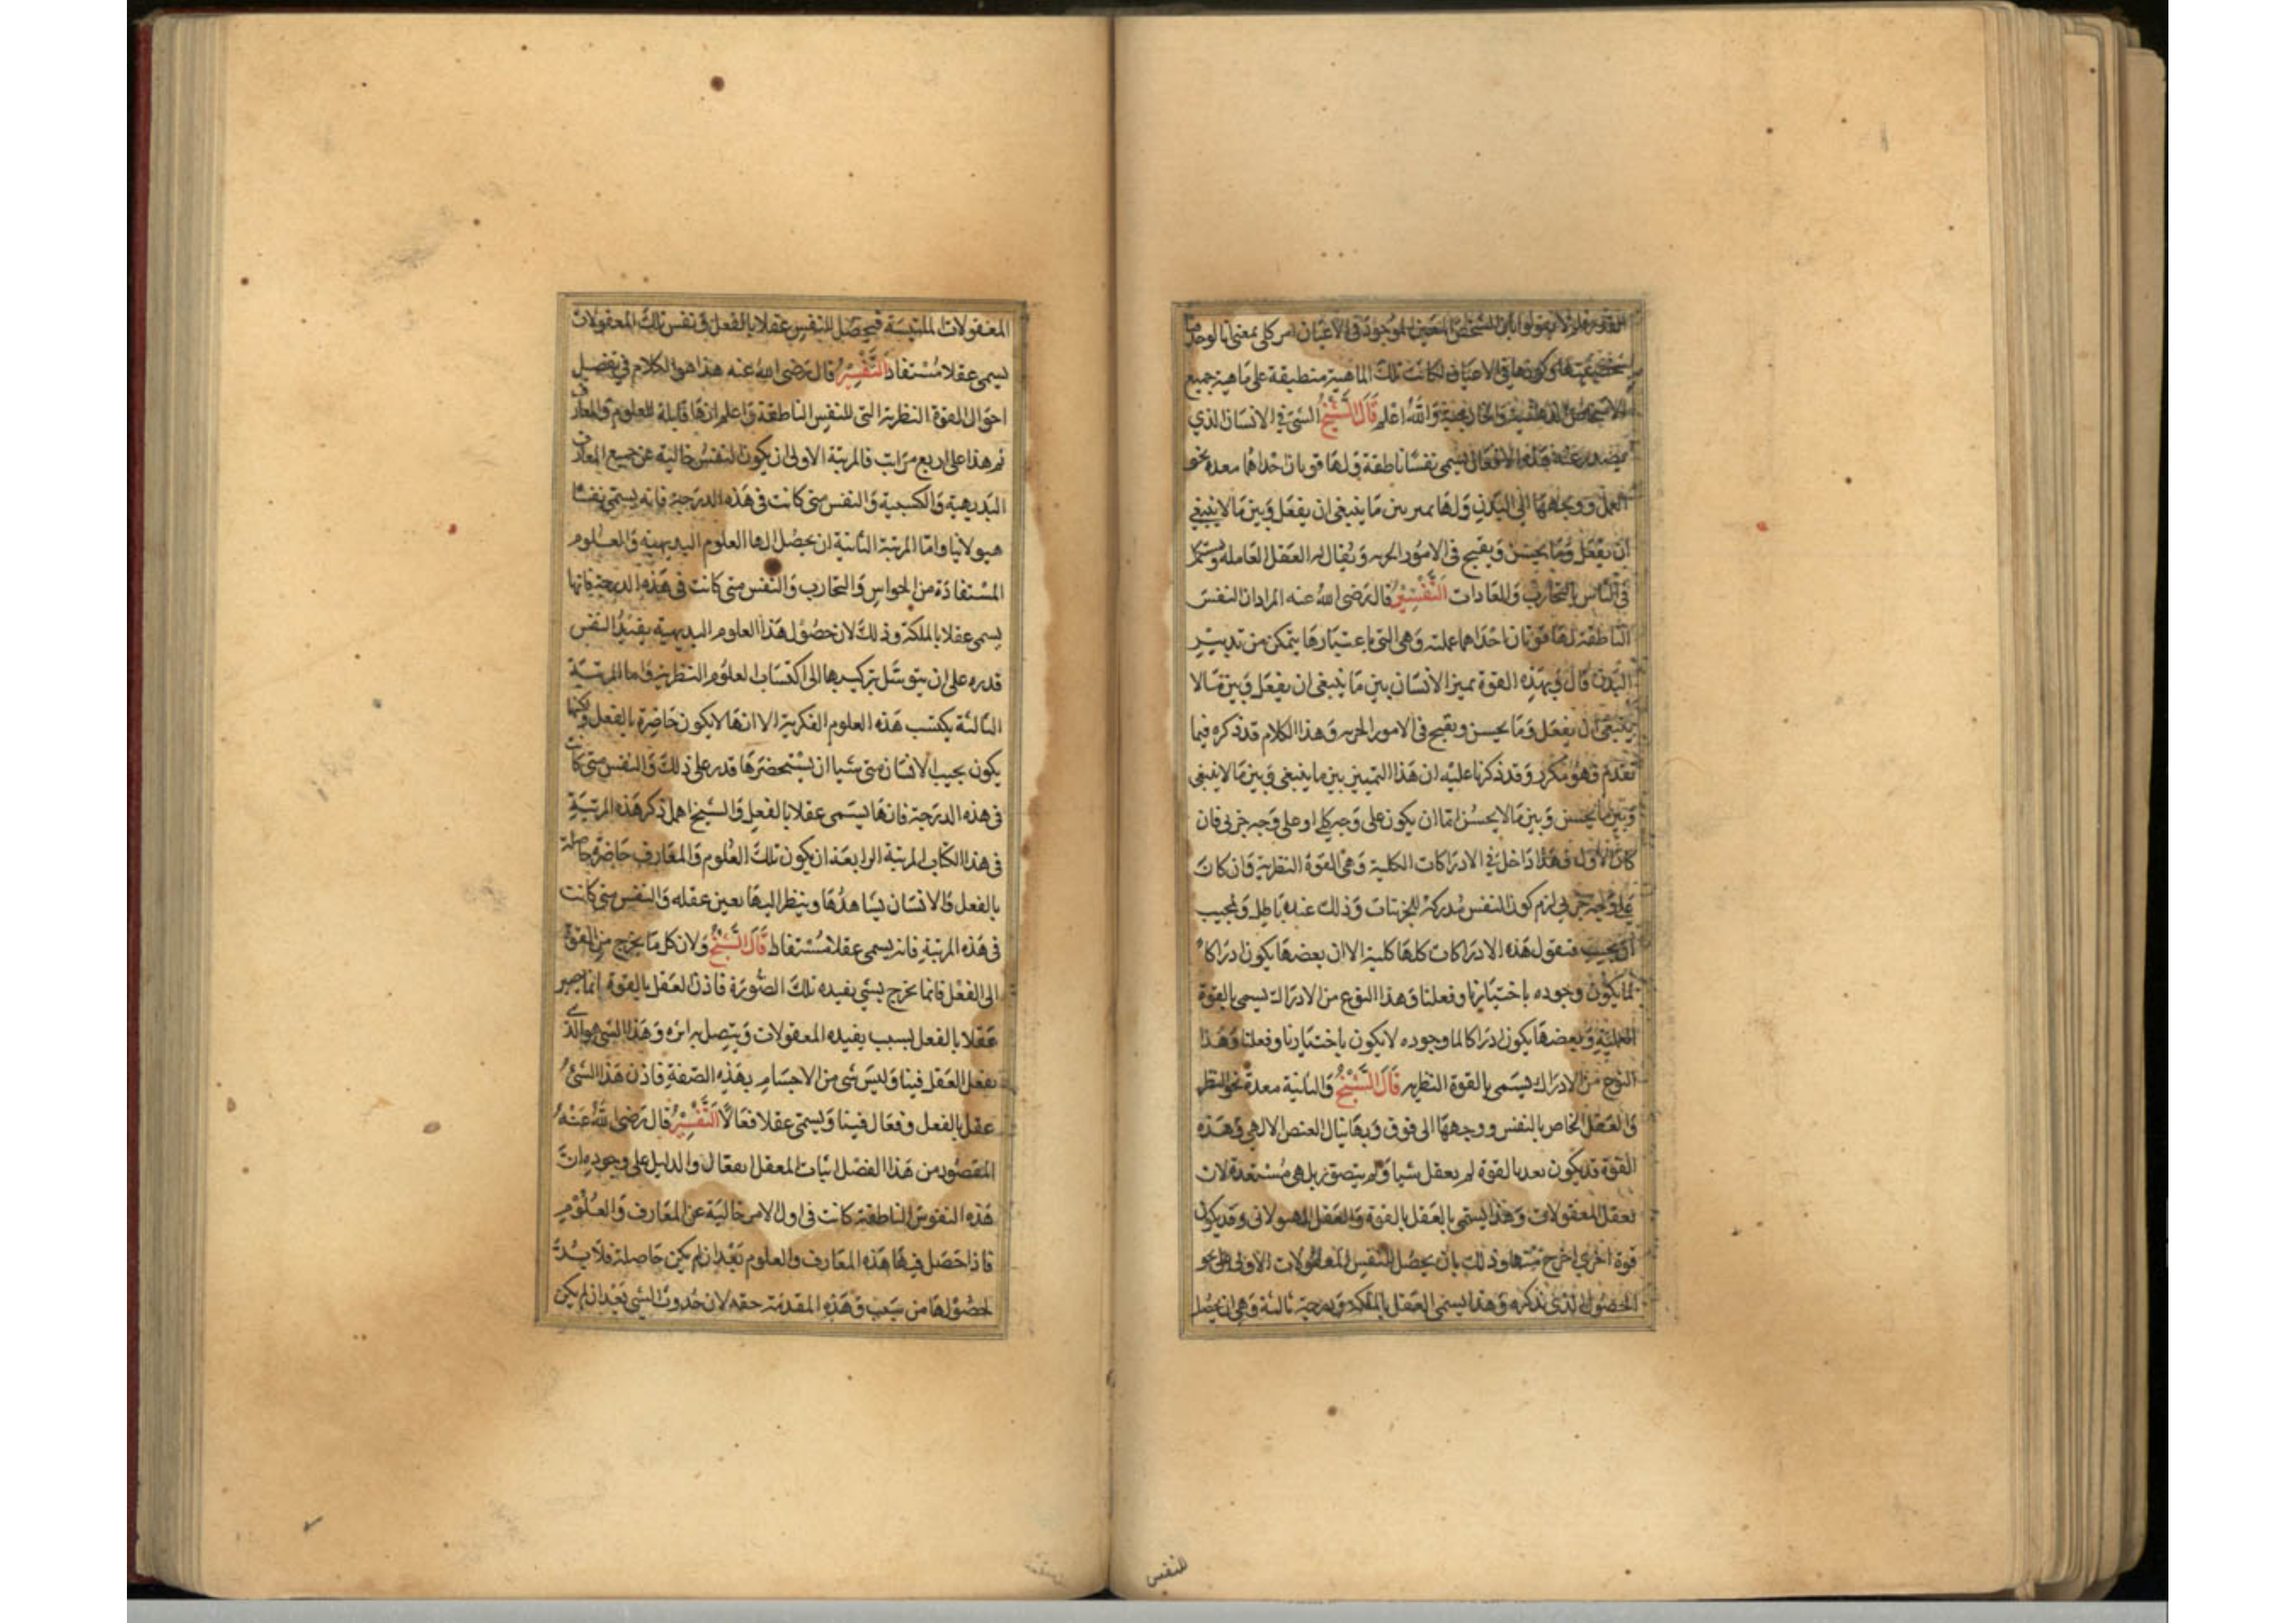 القدر فلو لا يقولوا بان الشخص المعين الموجود في الاعيان امر كلي بمعنى انا لوحذفنا
مشخصيتها كونها في الاعيان لكانت تلك الماهية منطبقة على ماهية جميع
الاشخاص الذهنية والخارجية والله اعلم قال الشيخ الشئ في الانسان الذي
يصدر عنه هذه الافعال يسمى نفسا ناطقة ولها قوتان احداهما معدة نحو
العمل ووجهها الى البدن ولها يميز بين ما ينبغي ان يفعل وبين ما لا ينبغي
ان يفعل وما يحسن ويقبح في الامور الجزيه ويقال له العقل العامله ويستكمل
في الناس بالتجارب والعادات التفسير قال رضى الله عنه المراد ان النفس
الناطقة لها قوتان احداهما عملية وهي التي باعتبارها يتمكن من تدبير
البدن قال وبهذه القوة يميز الانسان بين ما ينبغي ان يفعل وبين ما لا
ينبغي ان يفعل وما يحسن ويقبح في الامور الجزيه وهذا الكلام قد ذكره فيما
تقدم وهو مكرر وقد ذكرنا عليه ان هذا التمييز بين ما ينبغي وبين ما لا ينبغي
وبين ما يحسن وبين ما لا يحسن اما ان يكون على وجه كلي او على وجه جزئي فان
كان الاول فهذا داخل في الادراكات الكلية وهي القوة النظرية وان كان
على وجه جزئي لزم كون النفس مدركة للجزئيات وذلك عنده باطل ولمجيب
ان يجيب فنقول هذه الادراكات كلها كلية الا ان بعضها يكون ادراكا
لما يكون وجوده باختيارنا وفعلنا وهذا النوع من الادراك يسمى بالقوة
العملية وبعضها يكون ادراكا لما وجوده لا يكون باختيارنا وفعلنا وهذا
النوع من الادراك يسمى بالقوة النظريه قال الشيخ والثانية معدة نحو النظر
والعقل الخاص بالنفس ووجهها الى فوق وبها ينال الفيض الالهي وهذه
القوة قد يكون بعد بالقوة لم يعقل شيا ولم يتصور بل هي مستعدة لان
تعقل المعقولات وهذا يسمى بالعقل بالقوة والعقل الهيولاني وقد يكون
قوة اخرى اخرج منها وذلك بان يحصل للنفس المعقولات الاولى على نحو
الحصول الذي نذكره وهذا يسمى العقل بالملكة ودرجة ثالثة وهي ان يحصل
للنفس
المعقولات المكتسبة فيحصل للنفس عقلا بالفعل وتفس تلك المعقولات
يسمى عقلا مستفاد التفسير قال رضى الله عنه هذا هو الكلام في تفصيل
احوال القوة النظرية التي للنفس الناطقة واعلم انها قابلة للعلوم والمعارف
ثم هذا على اربع مراتب فالمرتبة الاولى ان يكون النفس خالية عن جميع المعارف
البديهية والكسبية والنفس متى كانت في هذه الدرجة فانه يسمى نفسا
هيولانيا واما المرتبة الثانية ان يحصل لها العلوم البديهية والعلوم
المستفادة من الحواس والتجارب والنفس متى كانت في هذه الدرجة فانها
يسمى عقلا بالملكة وذلك لان حصول هذا العلوم البديهية يفيد النفس
قدره على ان يتوسل بتركيبها الى اكتساب العلوم النظرية واما المرتبة
الثالثة يكتسب هذه العلوم الفكرية الا انها لا يكون حاضرة بالفعل ولكنها
يكون بحيث الانسان متى شيا ان يستحضرها قدر على ذلك والنفس متى كانت
في هذه الدرجة فانها يسمى عقلا بالفعل والشيخ اهمل ذكر هذه المرتبة
في هذا الكتاب المرتبة الرابعة ان يكون تلك العلوم والمعارف حاضرة حاصلة
بالفعل والانسان يشاهدها وينظر اليها بعين عقله والنفس متى كانت
في هذه المرتبة فانه يسمى عقلا مستفاط قال الشيخ ولان كل ما يخرج من القوة
الى الفعل فانما يخرج بشئ يفيده تلك الصورة فاذن العقل بالقوة انما يصير
عقلا بالفعل بسبب يفيده المعقولات ويتصل به اثره وهذا الشئ هو الذي
يفعل العقل فينا وليس شئ من الاجسام بهذه الصفة فاذن هذا الشئ
عقل بالفعل وفعال فينا ويسمى عقلا فعالا التفسير قال رضى الله عنه
المقصود من هذا الفصل اثبات العقل الفعال والدليل على وجوده ان
هذه النفوس الناطقة كانت في اول الامر خالية عن المعارف والعلوم
فاذا حصل فيها هذه المعارف والعلوم بعد ان لم يكن حاصلة فلا بد
لحصولها من سبب وهذه المقدمة حقه لان حدوث الشئ بعد ان لم يكن